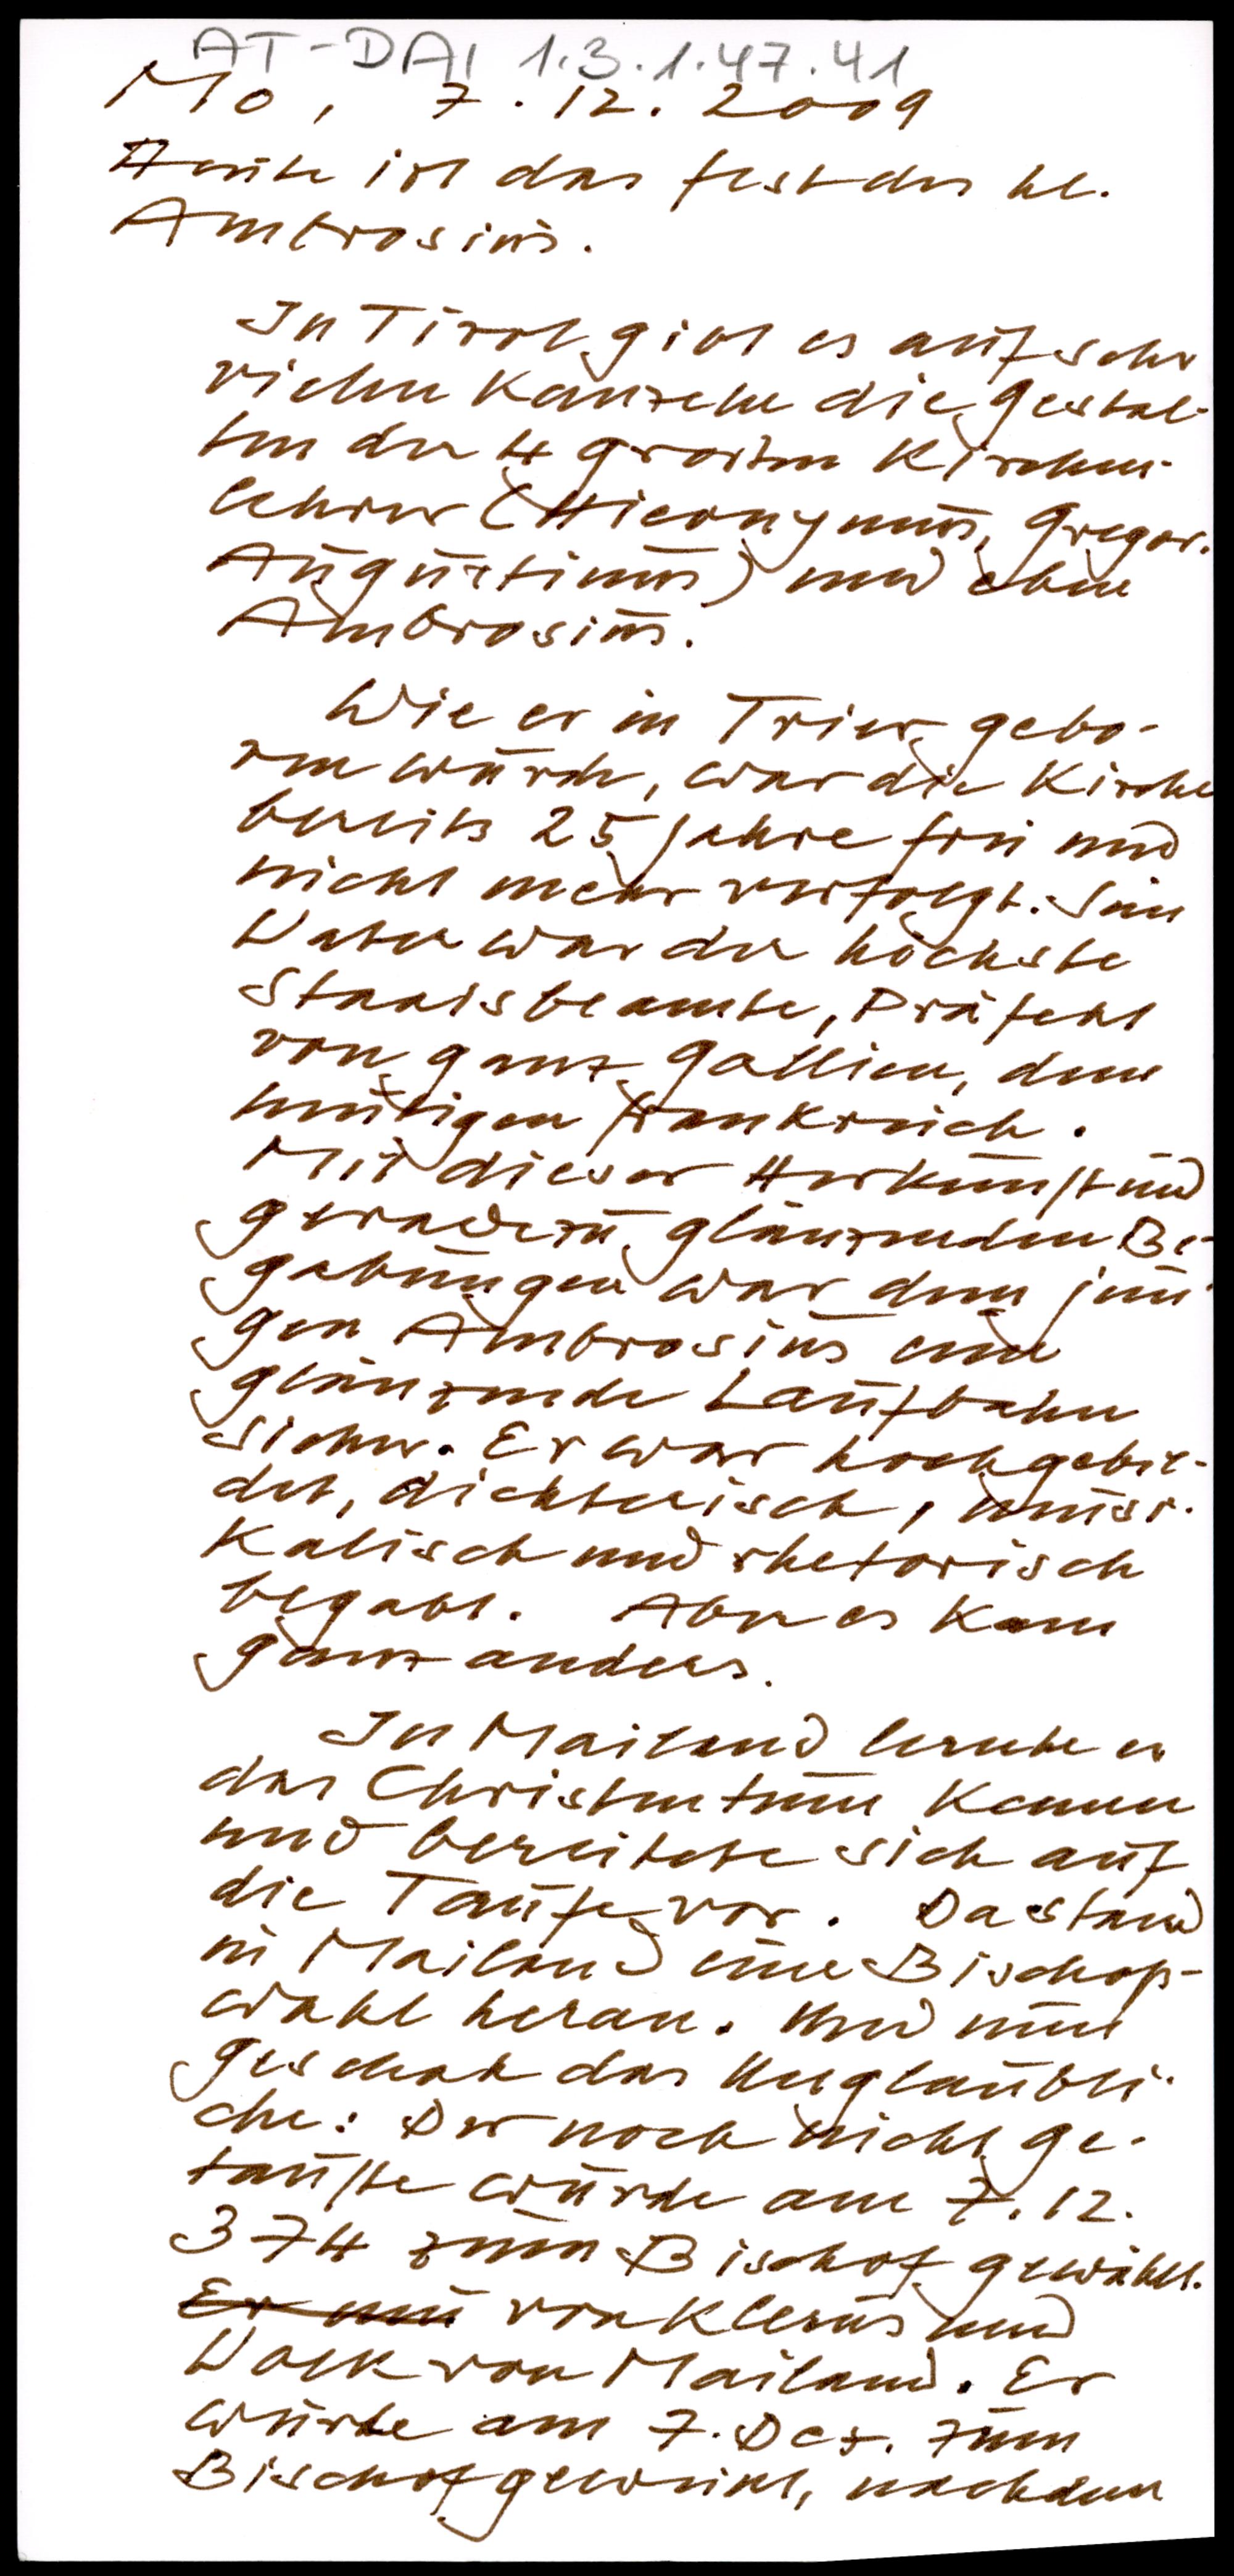 AT-DAI 1.3.1.47.41
Mo, 7.12.2009
Heute ist das Fest des hl.
Ambrosius.
In Tirol gibt es auf sehr
vielen Kanzeln die Gestal-
ten der 4 großen Kirchen-
lehrer (Hieronymus, Gregor.
Augustinus) und eben
Ambrosius.
Wie er in Trier gebo-
ren wurde, war die Kirche
bereits 25 Jahre frei und
nicht mehr verfolgt. Sein
Vater war der höchste
Staatsbeamte, Präfekt
von ganz Gallien, dem
heutigen Frankreich.
Mit dieser Herkunft und
geradezu glänzenden Be-
gabungen war dem jun-
gen Ambrosius eine
glänzende Laufbahn
sicher. Er war hochgebil-
det, dichterisch, musi-
kalisch und rhetorisch
begabt. Aber es kam
ganz anders.
In Mailand lernte er
das Christentum kennen
und bereitete sich auf
die Taufe vor. Da stand
in Mailand eine Bischofs-
wahl heran. Und nun
geschah das Unglaubli-
che: Der noch nicht ge-
taufte wurde am 7.12.
374 zum Bischof gewählt.
Er nun von Klerus und
Volk von Mailand. Er
wurde am 7. Dez. zum
Bischof geweiht, nachdem